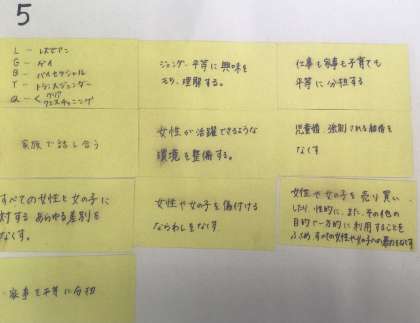 5
L - レズビアン
G - ゲイ
B - バイセクシャル
T - トランスジェンダー
Q - クィア
クエスチョニング
ジェンダー平等に興味を
もち、理解する。
仕事も家事も子育ても
平等に分担する
家族で話し合う
女性が活躍できるような
環境を整備する。
児童婚、強制される結婚を
なくす
すべての女性と女の子に
対するあらゆる差別を
なくす。
女性や女の子を傷付ける
ならわしをなくす
女性や女の子を売り買い
したり、性的に、また、その他の
目的で一方的に利用することを
ふくめ、すべての女性や女の子への暴力をなくす
家事を平等に分担